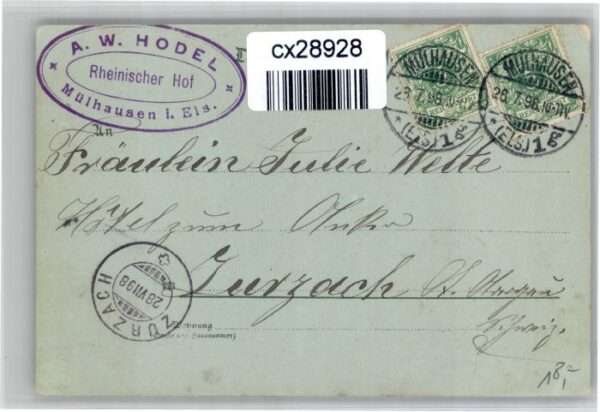 A. W. HODEL
Rheinischer Hof
* Mülhausen i. Els. *
cx28928
MÜLHAUSEN
28.7.98.10-11V.
* (ELS.) 1 g *
MÜLHAUSEN
28.7.98.10-11V.
* (ELS.) 1 g *
An
Fräulein Julie Welte
Hôtel zum Anker
Zurzach Ct. Aargau
Schweiz.
ZURZACH
28 VII 98
Wohnung
18.-